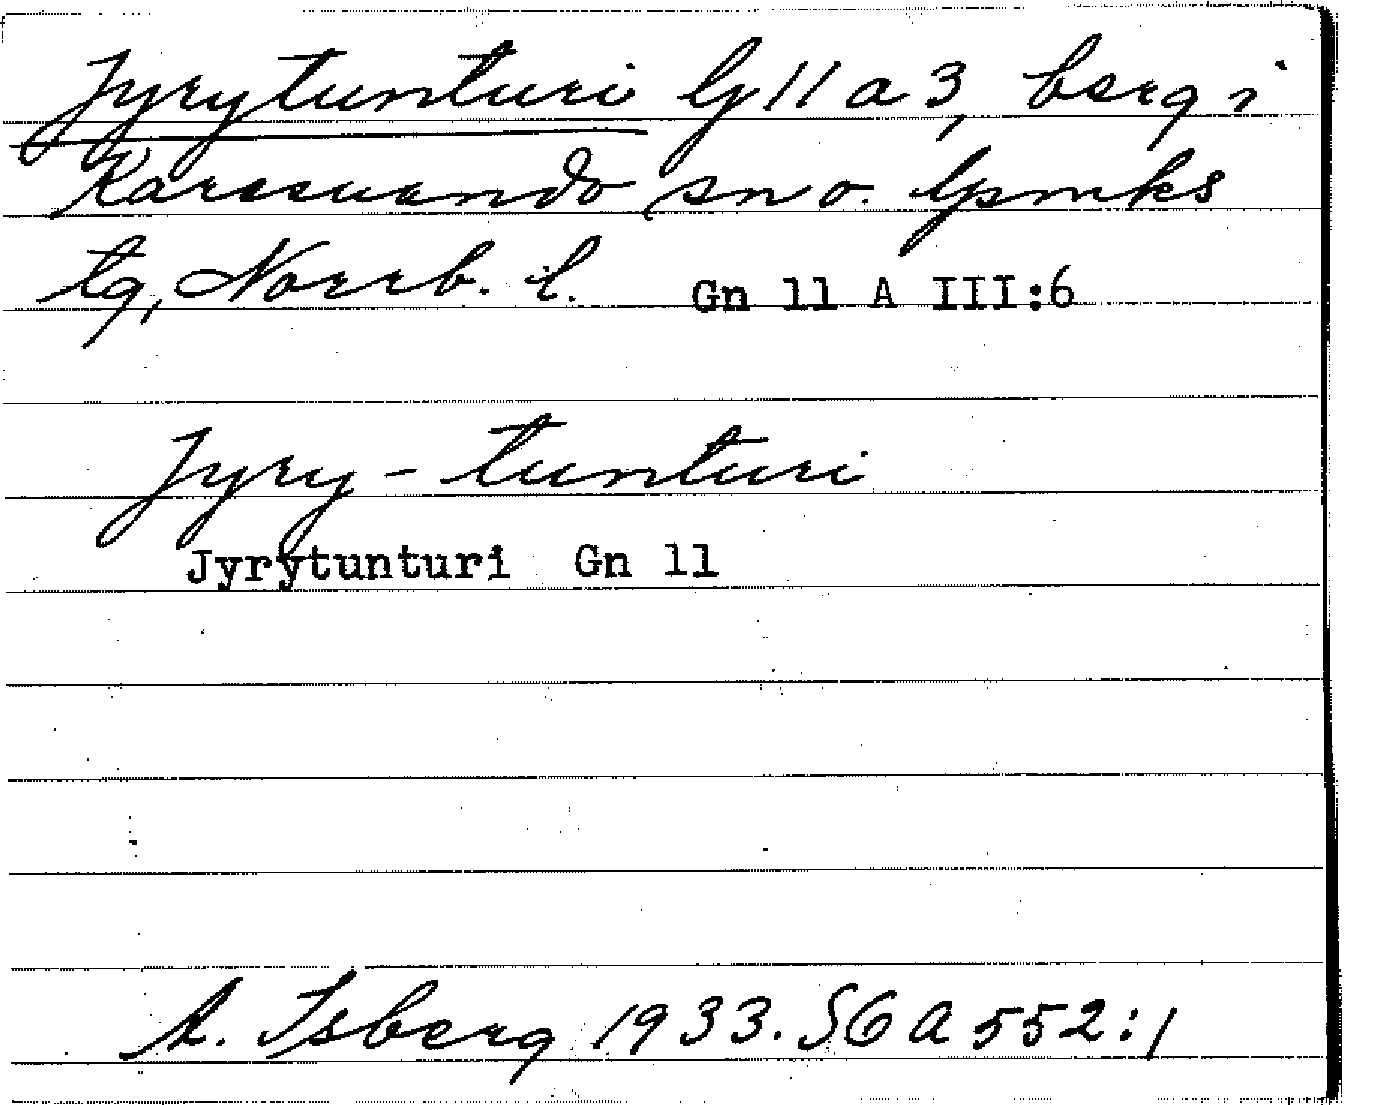 Jyrytunturi G 11 a 3, berg i
Karesuando sn o. lpmks
tg, Norrb. l. Gn 11 A III:6
Jyry - tunturi
Jyrytunturi Gn 11
A. Isberg 1933. SGA 552:1